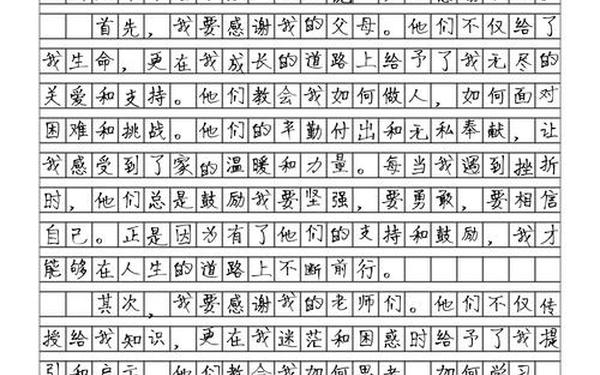 首先，我要感谢我的父母。他们不仅给了
我生命，更在我成长的道路上给予了我无尽的
关爱和支持。他们教会我如何做人，如何面对
困难和挑战。他们的辛勤付出和无私奉献，让
我感受到了家的温暖和力量。每当我遇到挫折
时，他们总是鼓励我要坚强，要勇敢，要相信
自己。正是因为有了他们的支持和鼓励，我才
能够在人生的道路上不断前行。
其次，我要感谢我的老师们。他们不仅传
授给我知识，更在我迷茫和困惑时给予了我提
引和启示。他们教会我如何思考，如何学习，